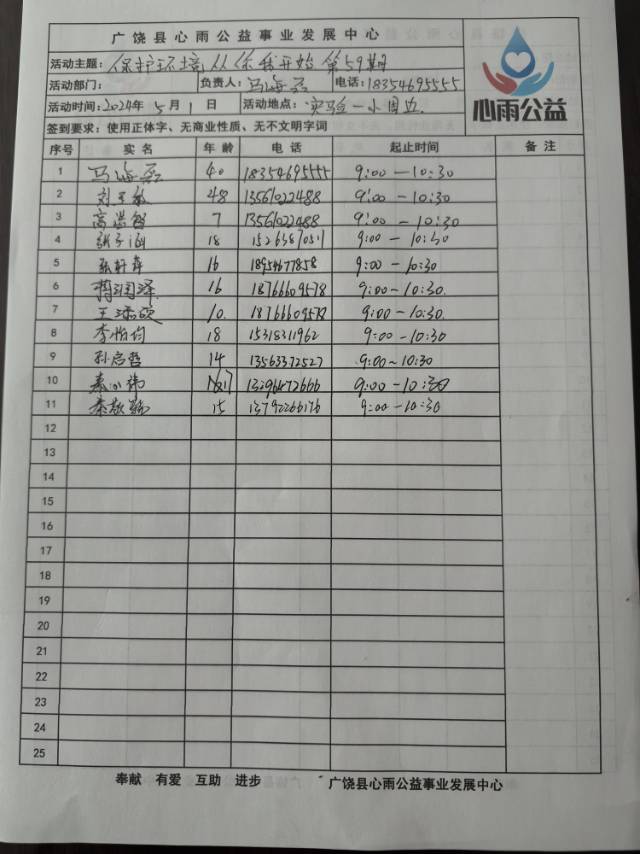 广饶县心雨公益事业发展中心
活动主题：保护环境从你我开始第59期
活动部门： 负责人：马海 电话：18354695555
活动时间：2024年5月1日 活动地点：实验一小周边.
签到要求：使用正体字、无商业性质、无不文明字词
心雨公益
序号 实名 年龄 电话 起止时间 备注
1 马海 40 18354695555 9:00-10:30
2 刘 48 13561022488 9:00-10:30
3 高 7 13561022488 9:00-10:30
4 张子涵 18 9:00-10:30
5 张轩萍 16 18954677858 9:00-10:30
6 润泽 16 18766609578 9:00-10:30
7 王 10. 18766609578 9:00-10:30.
8 李怡钧 18 15318311962 9:00-10:30
9 孙启哲 14 13563372527 9:00~10:30
10 秦 13296472666 9:00-10:30
11 秦 15 13792266176 9:00-10:30
12
13
14
15
16
17
18
19
20
21
22
23
24
25
奉献 有爱 互助 进步 广饶县心雨公益事业发展中心